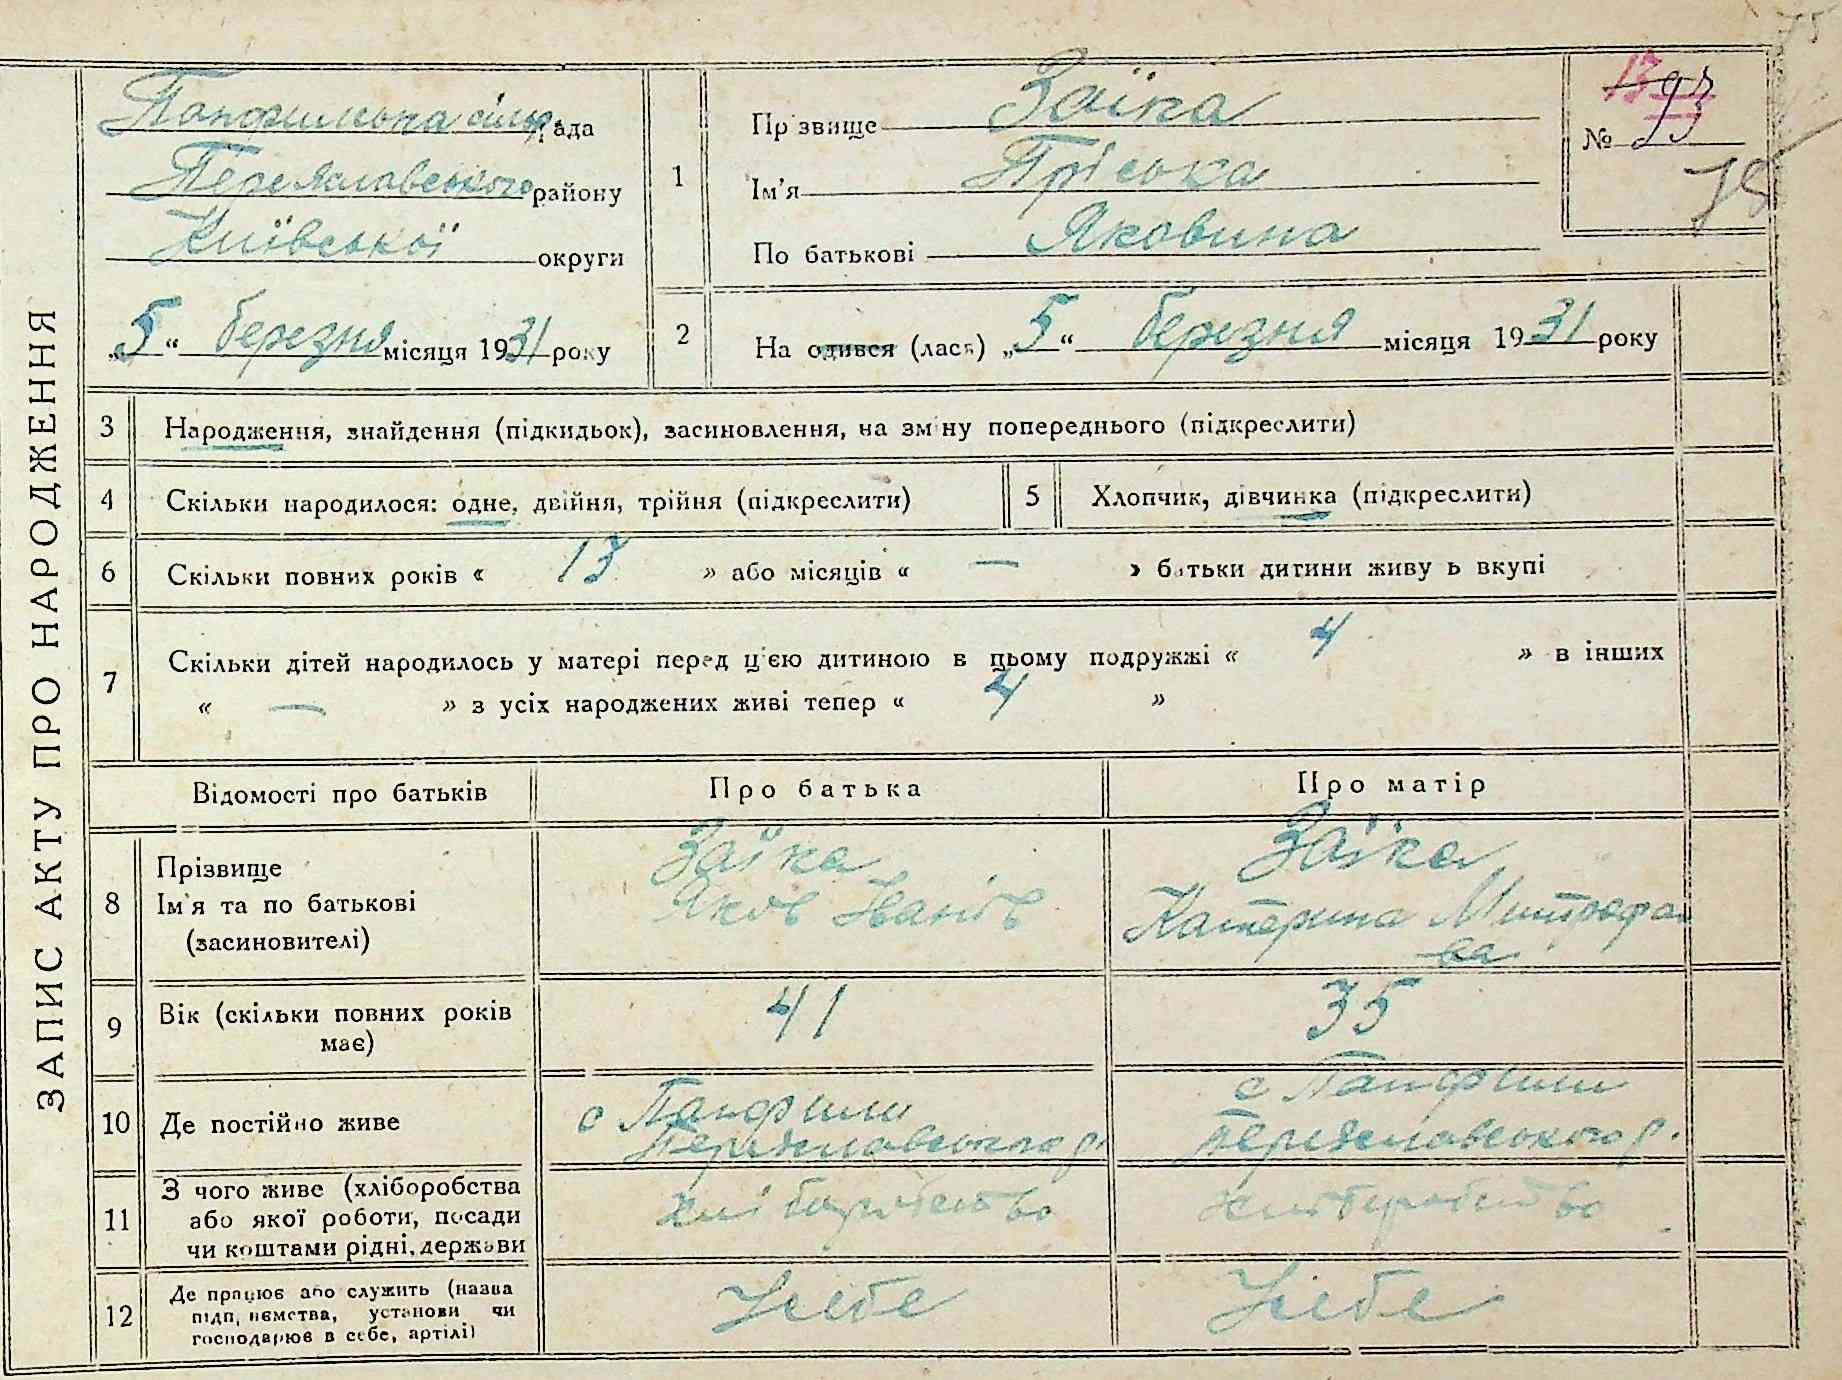 ЗАПИС АКТУ ПРО НАРОДЖЕННЯ
Панфильська сільрада
Переяславського району
Київської округи
„5“ березня місяця 1931 року
1
Прізвище Заїка
Ім’я Пріська
По батькові Яковина
№ 93
13
78
2
На одився (лася) „5“ березня місяця 1931 року
3
Народження, знайдення (підкидьок), засиновлення, на зміну попереднього (підкреслити)
4
Скільки народилося: одне, двійня, трійня (підкреслити)
5
Хлопчик, дівчинка (підкреслити)
6
Скільки повних років « 13 » або місяців « — » батьки дитини живуть вкупі
7
Скільки дітей народилось у матері перед цією дитиною в цьому подружжі « 4 » в інших
« — » з усіх народжених живі тепер « 4 »
Відомості про батьків
Про батька
Про матір
8
Прізвище
Ім’я та по батькові
(засиновителі)
Заїка
Яков Іванів
Заїка
Катерина Митрофан
ва
9
Вік (скільки повних років
має)
41
35
10
Де постійно живе
с Панфили
Переяславського р.
с Панфили
Переяславського р.
11
З чого живе (хліборобства
або якої роботи, посади
чи коштами рідні, держави
хліборобство
хліборобство
12
Де працює або служить (назва
підп, иємства, установи чи
господарює в себе, артілі)
У себе
У себе